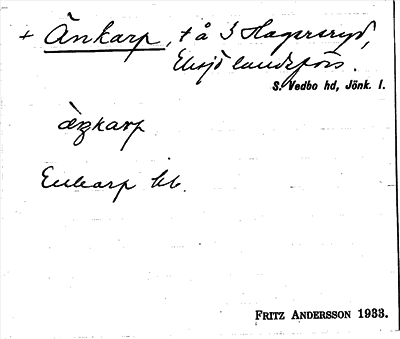 + Änkarp, t å S Hagersryd,
Eksjö landsförs.
S. Vedbo hd, Jönk. l.
äŋkarp
Enkarp kb.
FRITZ ANDERSSON 1933.